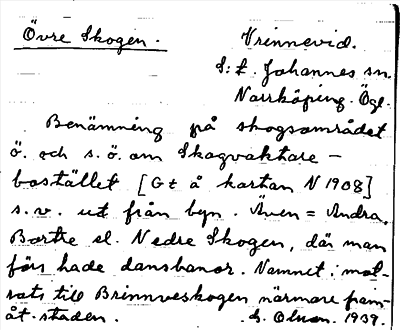 Övre Skogen. Vrinnevid.
S:t. Johannes sn.
Norrköping. Ögl.
Benämning på skogsområdet
ö. och s.ö. om Skogvaktare-
bostället [Gt å kartan N 1908]
s.v. ut från byn. Även = Andra,
Bortre el. Nedre Skogen, där man
förs hade dansbanor. Namnet i mot-
sats till Brinnveskogen närmare fram-
åt staden. S. Olson. 1939.